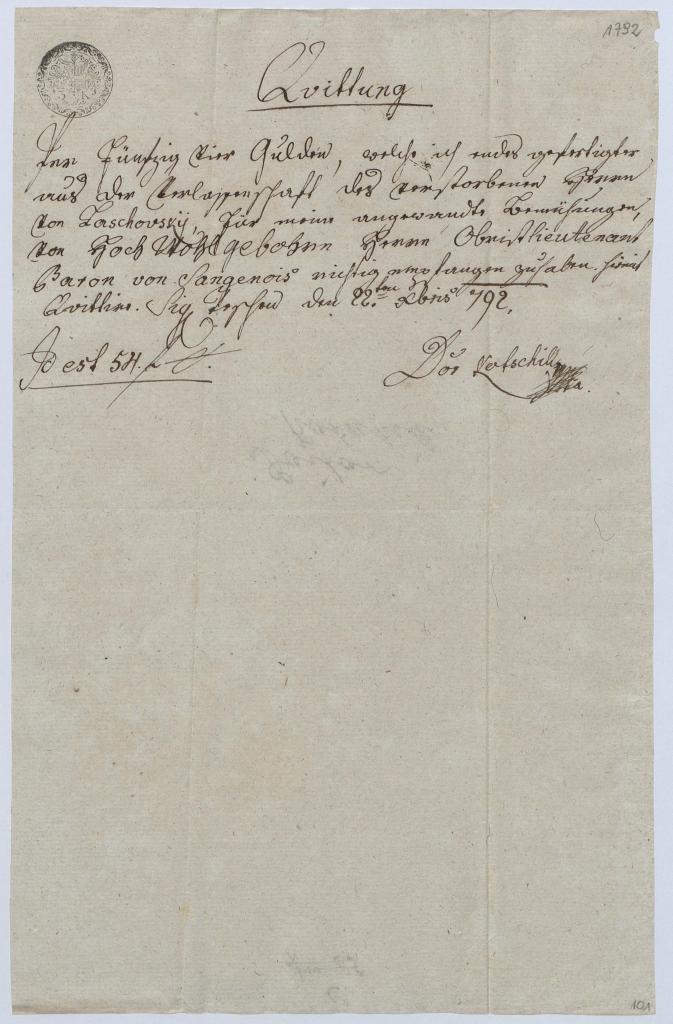 1792
Quittung
Per Fünfzig Vier Gulden, welche ich endes gefertigter
aus der Verlassenschaft des verstorbenen Herrn
von Laschovsky, für meine angewandte Bemühungen,
von Hoch Wohlgebohrn Herrn Obristlieutenant
Baron von Sangenois richtig empfangen zuhaben hiemit
Quittire. Sig. Teschen den 22.ten Xbris 792.
Id est 54. f
Dor Kotschill
101